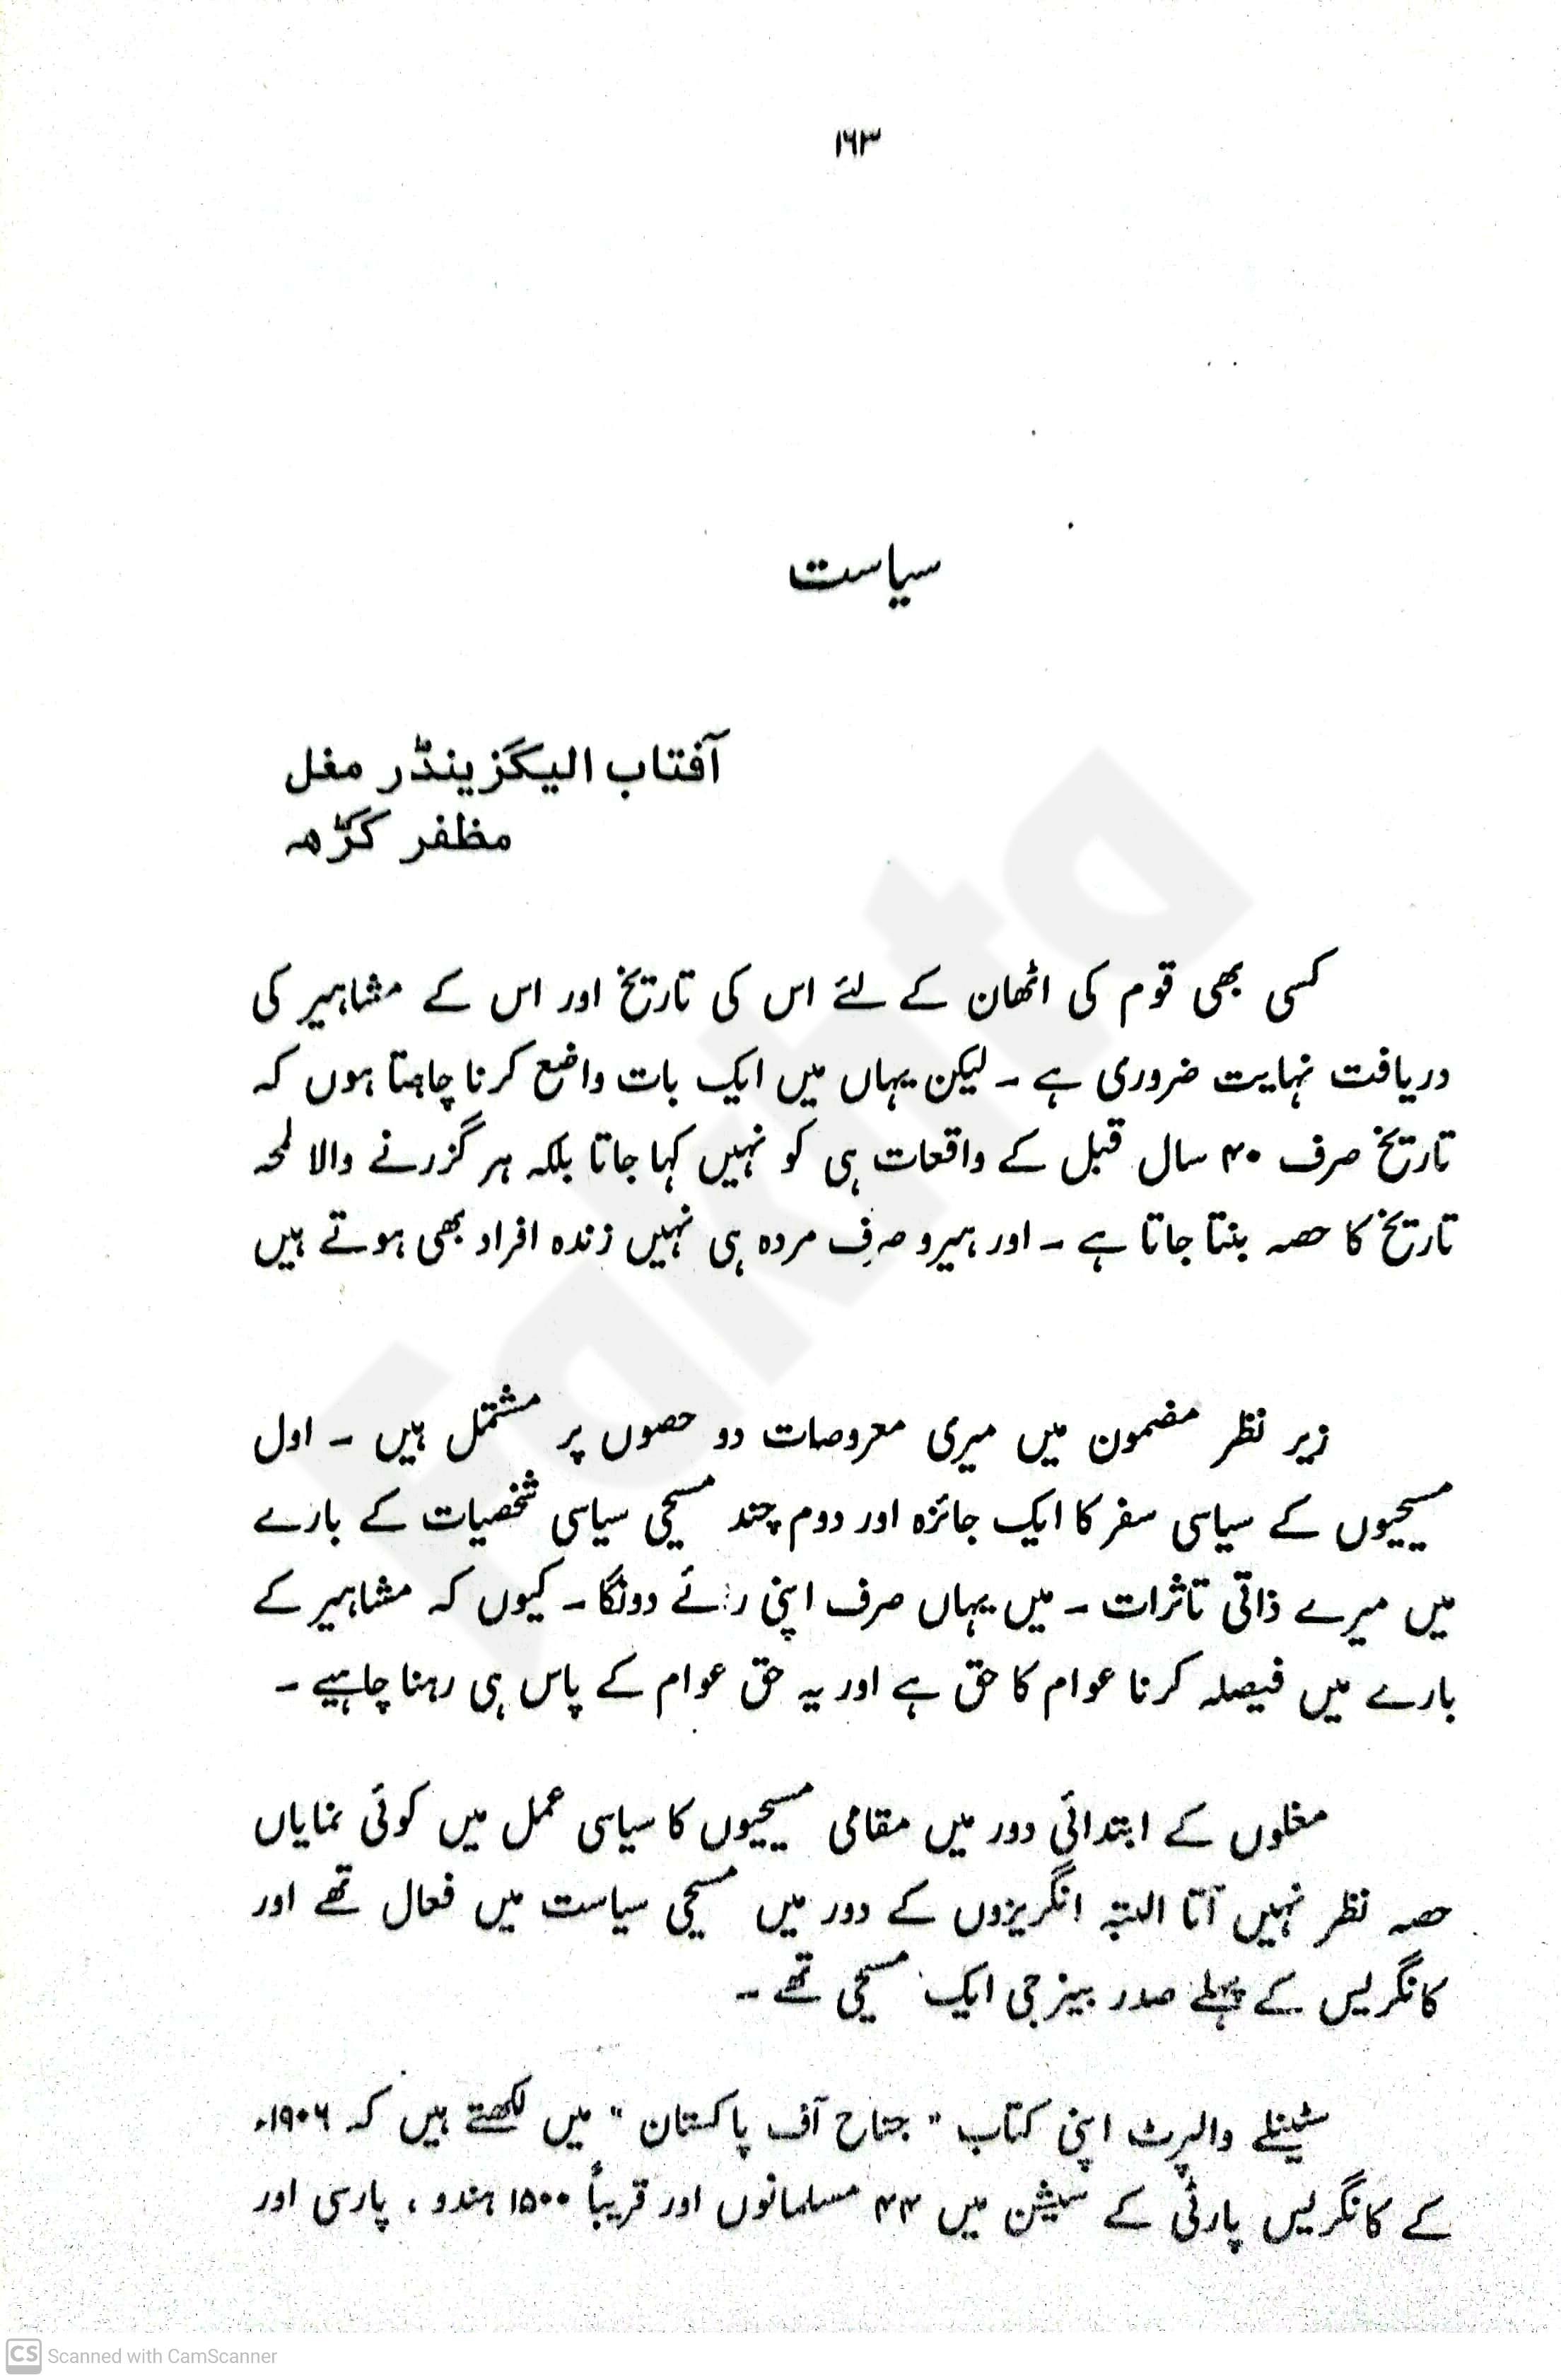 ۱۶۳
سیاست
آفتاب الیگزینڈر مغل
مظفر گڑھ
کسی بھی قوم کی اٹھان کے لئے اس کی تاریخ اور اس کے مشاہیر کی
دریافت نہایت ضروری ہے ۔ لیکن یہاں میں ایک بات واضع کرنا چاہتا ہوں کہ
تاریخ صرف ۴۰ سال قبل کے واقعات ہی کو نہیں کہا جاتا بلکہ ہر گزرنے والا لمحہ
تاریخ کا حصہ بنتا جاتا ہے ۔ اور ہیرو صرف مردہ ہی نہیں زندہ افراد بھی ہوتے ہیں
زیر نظر مضمون میں میری معروضات دو حصوں پر مشتمل ہیں ۔ اول
مسیحیوں کے سیاسی سفر کا ایک جائزہ اور دوم چند مسیحی سیاسی شخصیات کے بارے
میں میرے ذاتی تاثرات ۔ میں یہاں صرف اپنی رائے دونگا ۔ کیوں کہ مشاہیر کے
بارے میں فیصلہ کرنا عوام کا حق ہے اور یہ حق عوام کے پاس ہی رہنا چاہیے ۔
مغلوں کے ابتدائی دور میں مقامی مسیحیوں کا سیاسی عمل میں کوئی نمایاں
حصہ نظر نہیں آتا البتہ انگریزوں کے دور میں مسیحی سیاست میں فعال تھے اور
کانگریس کے پہلے صدر بینرجی ایک مسیحی تھے ۔
سٹینلے والپرٹ اپنی کتاب " جناح آف پاکستان " میں لکھتے ہیں کہ ۱۹۰۶ء
کے کانگریس پارٹی کے سیشن میں ۴۴ مسلمانوں اور قریباً ۱۵۰۰ ہندو ، پارسی اور
Fakhta
CS Scanned with CamScanner